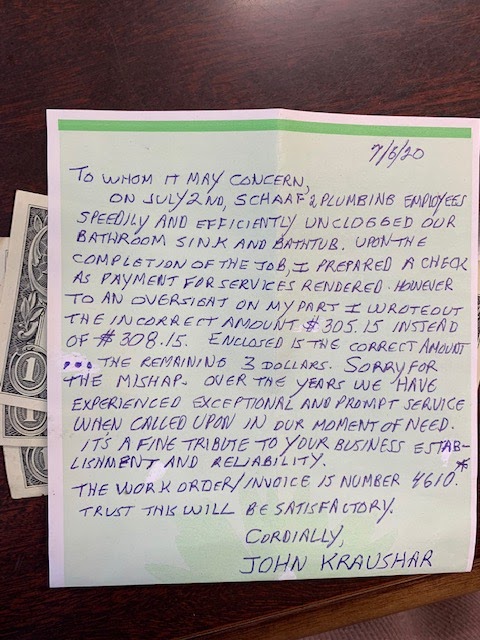 7/6/20
TO WHOM IT MAY CONCERN,
ON JULY 2ND, SCHAAF'S PLUMBING EMPLOYEES
SPEEDILY AND EFFICIENTLY UNCLOGGED OUR
BATHROOM SINK AND BATHTUB. UPON THE
COMPLETION OF THE JOB, I PREPARED A CHECK
AS PAYMENT FOR SERVICES RENDERED. HOWEVER
TO AN OVERSIGHT ON MY PART I WROTE OUT
THE INCORRECT AMOUNT $305.15 INSTEAD
OF $308.15. ENCLOSED IS THE CORRECT AMOUNT
... THE REMAINING 3 DOLLARS. SORRY FOR
THE MISHAP. OVER THE YEARS WE HAVE
EXPERIENCED EXCEPTIONAL AND PROMPT SERVICE
WHEN CALLED UPON IN OUR MOMENT OF NEED.
IT'S A FINE TRIBUTE TO YOUR BUSINESS ESTAB-
LISHMENT AND RELIABILITY.
THE WORK ORDER/INVOICE IS NUMBER 4610.*
TRUST THIS WILL BE SATISFACTORY.
CORDIALLY,
JOHN KRAUSHAR